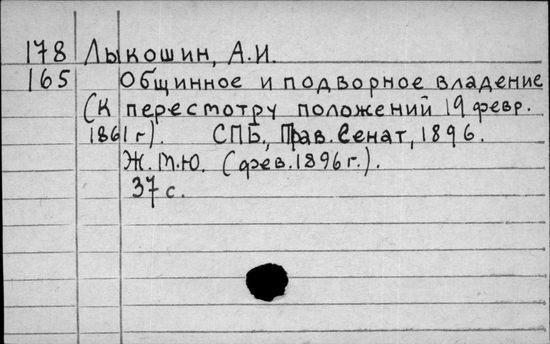 178 Лыкошин, А.И.
165 Общинное и подворное владение
(К пересмотру положений 19 февр.
1861 г). СПБ, Прав. Сенат, 1896.
Ж.М.Ю. (фев. 1896 г.).
37 с.